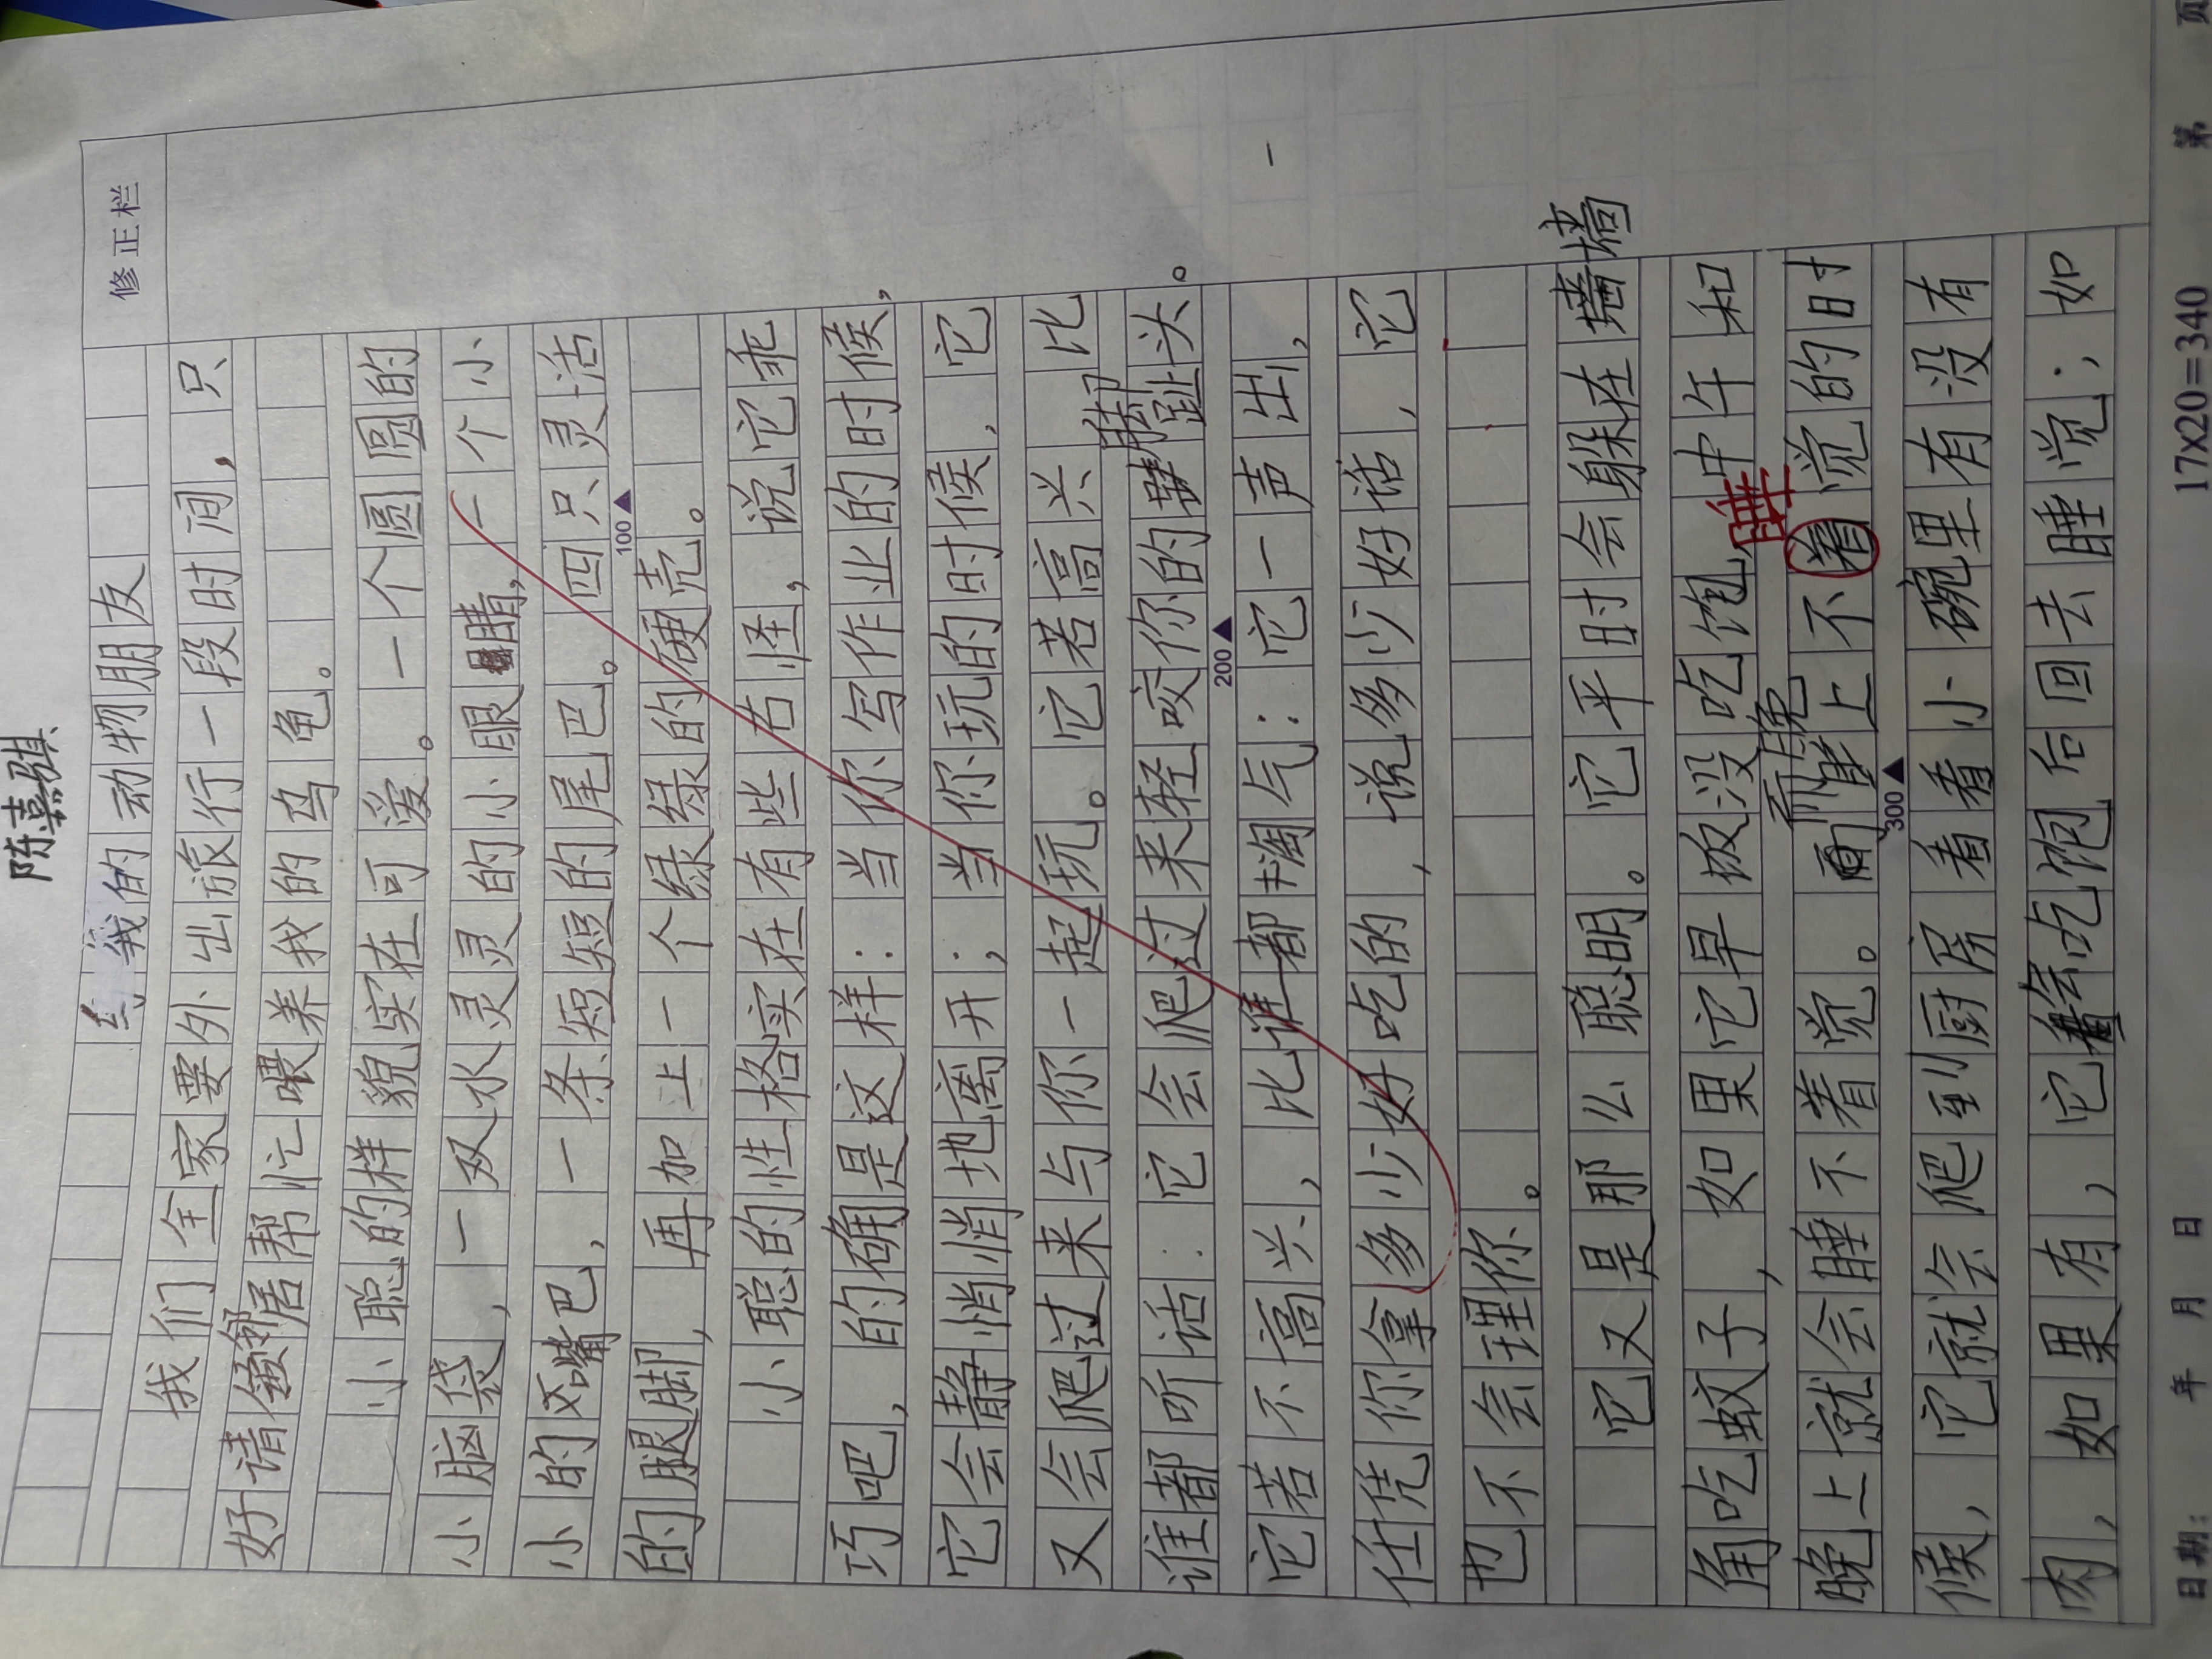 陈嘉骐
修正栏
我的动物朋友
我们全家要外出旅行一段时间，只
好请邻居帮忙喂养我的乌龟。
小聪的样貌实在可爱。一个圆圆的
小脑袋，一双水灵灵的小眼睛，一个小
小的嘴巴，一条短短的尾巴。四只灵活
100
的腿脚，再加上一个绿绿的硬壳。
小聪的性格实在有些古怪，说它乖
巧吧，的确是这样：当你写作业的时候，
它会静悄悄地离开；当你玩的时候，它
又会爬过来与你一起玩。它若高兴 比
谁都听话：它会爬过来轻咬你的脚趾头。
200
它若不高兴，比谁都淘气：它一声出，
任凭你拿多少好吃的，说多少好话，它
也不会理你。
它又是那么聪明。它平时会躲在墙
角吃蚊子，如果它早饭没吃饱，中午和
晚上就会睡不着觉。而晚上不着觉的时
睡
300
候，它就会爬到厨房看看小碗里有没有
肉，如果有，它会吃饱后回去睡觉；如
日期： 年 月 日 17x20=340 第 页